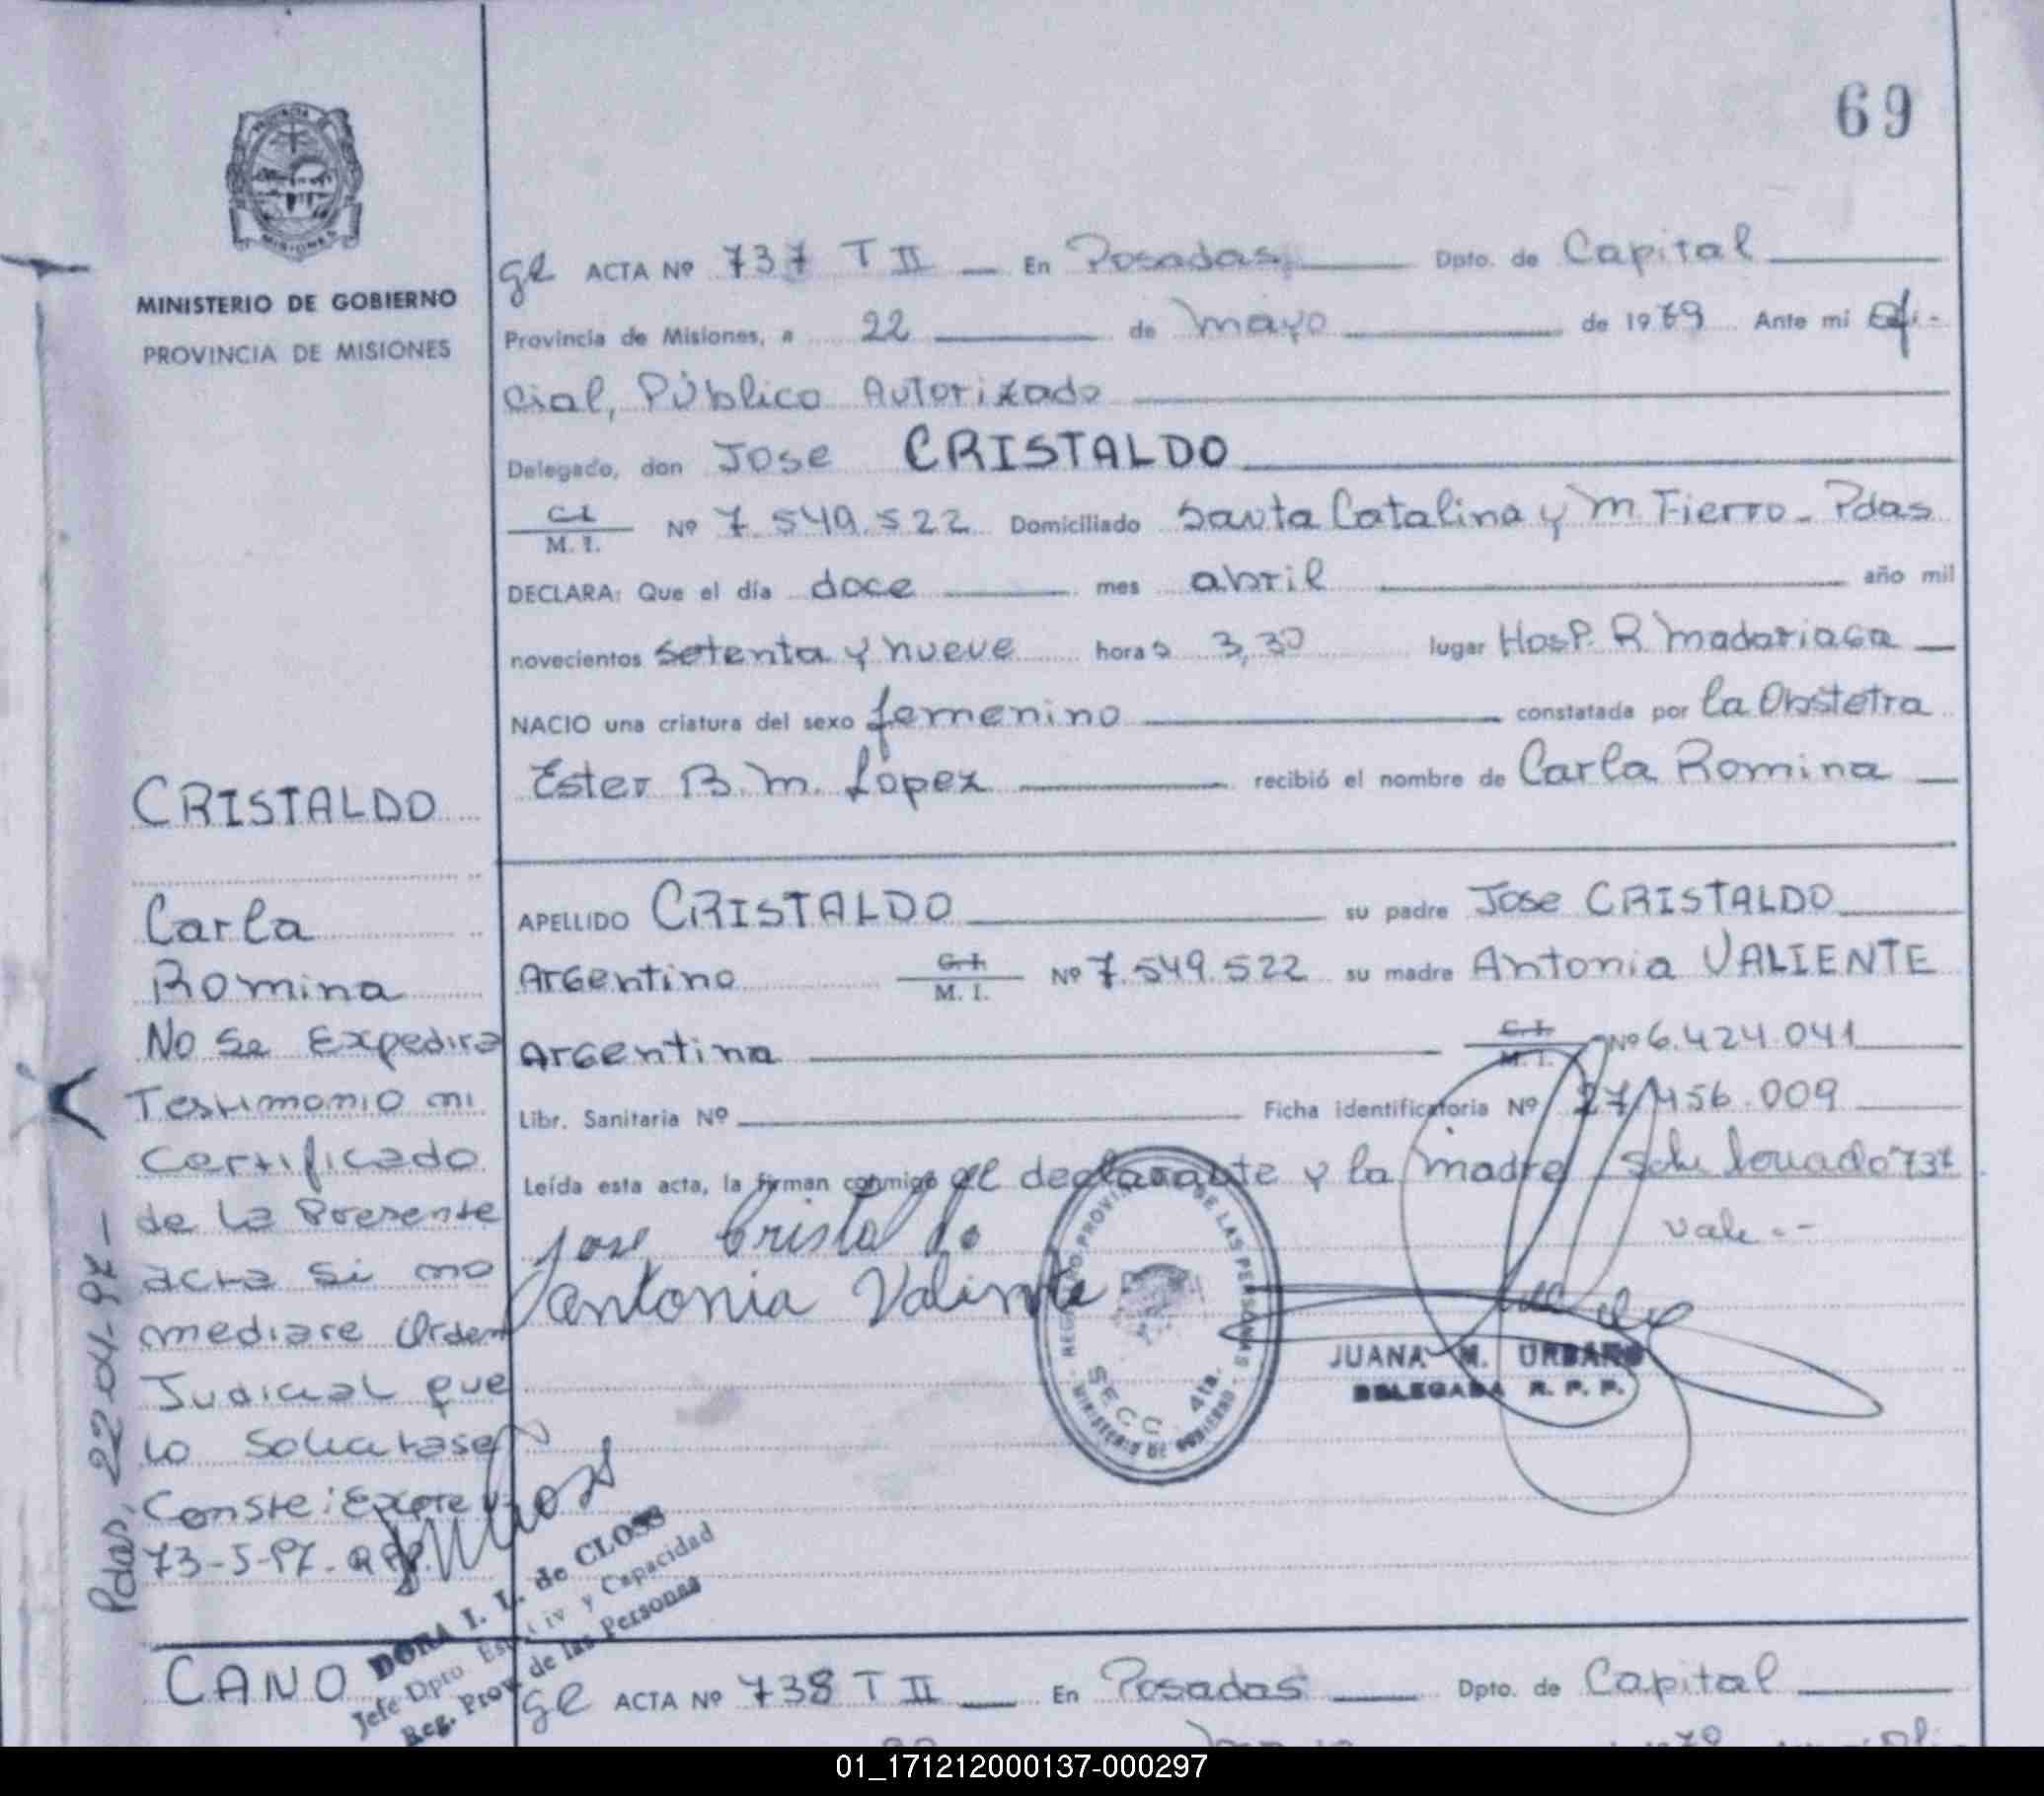 69
PROVINCIA
MISIONES
MINISTERIO DE GOBIERNO
PROVINCIA DE MISIONES
ge ACTA Nº 737 T II En Posadas Dpto. de Capital
Provincia de Misiones, a 22 de mayo de 1979 Ante mi Ofi-
cial, Público Autorizado
Delegado, don Jose CRISTALDO
C.I. M. I. Nº 7.549.522 Domiciliado Santa Catalina y M. Fierro - Pdas
DECLARA: Que el día doce mes abril año mil
novecientos setenta y nueve horas 3,30 lugar Hosp. R. Madariaga
NACIO una criatura del sexo femenino constatada por la Obstetra
Ester B. M. Lopez recibió el nombre de Carla Romina
APELLIDO CRISTALDO su padre Jose CRISTALDO
Argentino C.I. M. I. Nº 7.549.522 su madre Antonia VALIENTE
Argentina C.I. M. I. Nº 6.424.041
Libr. Sanitaria Nº Ficha identificatoria Nº 27.456.009
Leída esta acta, la firman conmigo el declarante y la madre 737
vale.-
Jose Cristaldo
antonia Valinte
REGISTRO PROVINCIAL DE LAS PERSONAS
SECC. 4ta.
MINISTERIO DE GOBIERNO
JUANA M. URBANO
DELEGADA R. P. P.
CRISTALDO
Carla
Romina
No Se Expedira
Testimonio ni
Certificado
de la Presente
acta si no
mediare Orden
Judicial que
lo Solicitase
Conste: Expte
73-5-97-RPP.
Pdas, 22-04-97-
DORA I. L. de CLOSS
Jefe Dpto Est Civ y Capacidad
Reg. Prov. de las Personas
CANO
ge ACTA Nº 738 T II En Posadas Dpto. de Capital
01_171212000137-000297